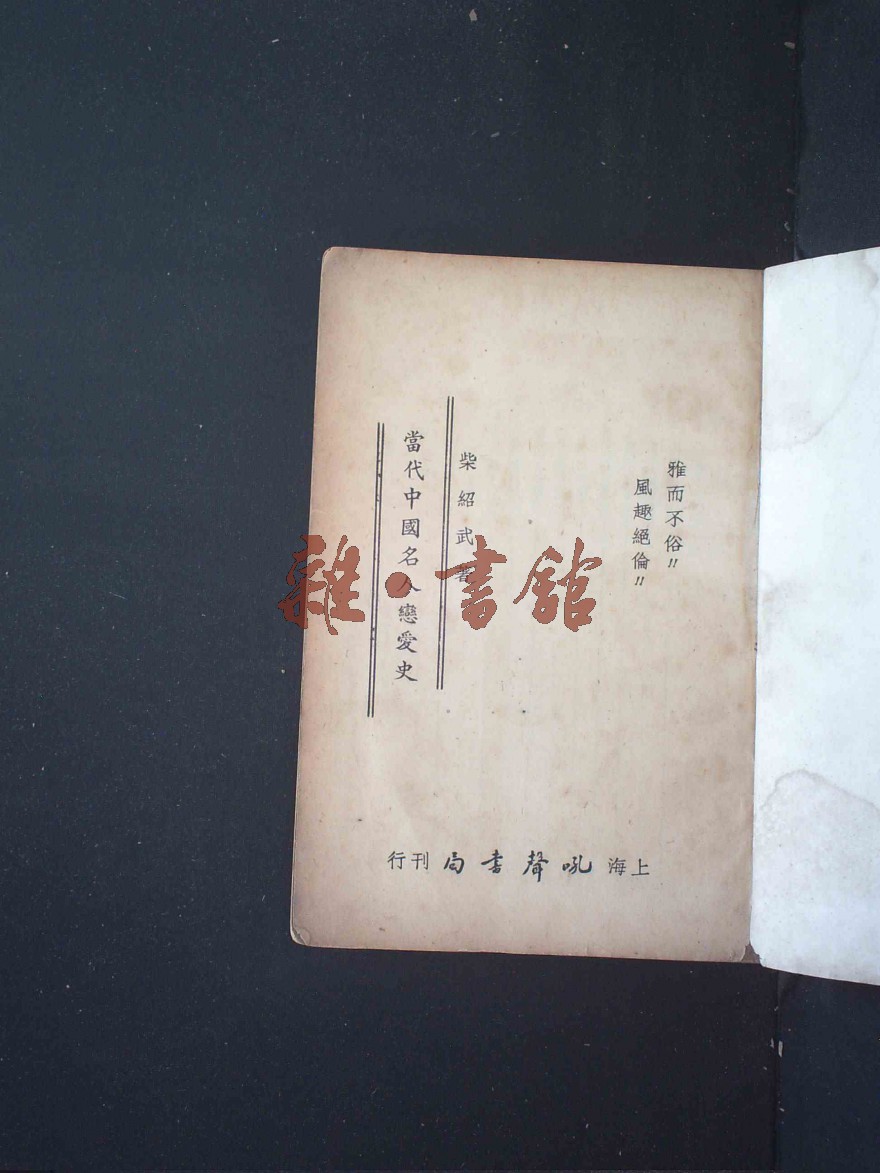 雅而不俗!!
風趣絕倫!!
柴紹武著
當代中國名人戀愛史
上海吼聲書局刊行
雜·書舘